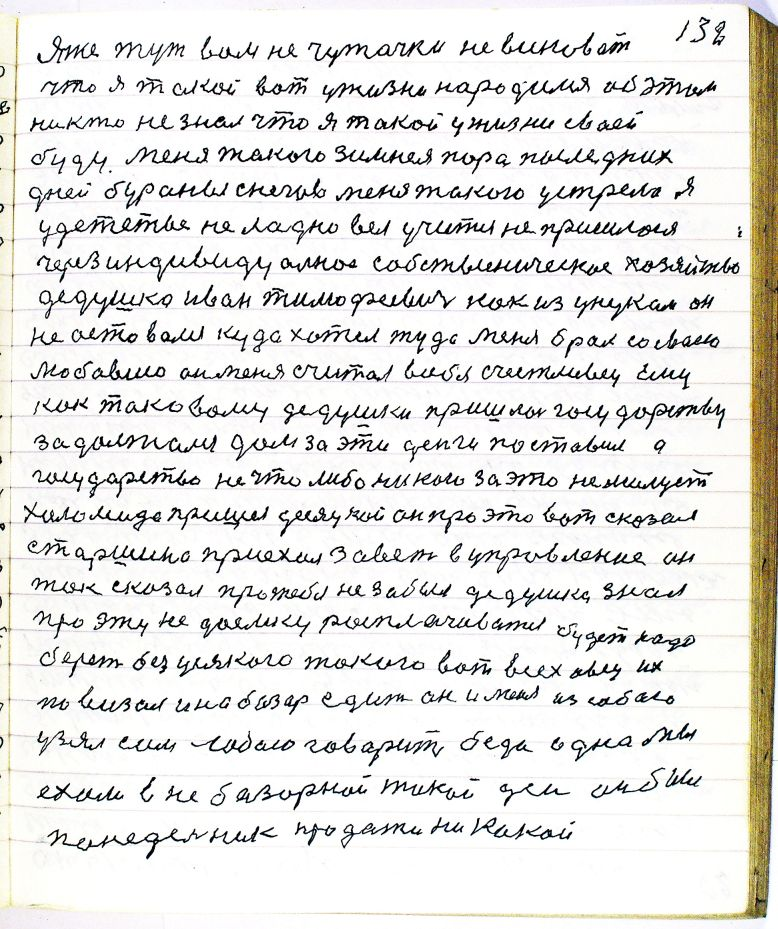 132
Яже тут вам не чутачки не виноват
что я такой вот ужизни народимя об этом
никто не знал что я такой ужизни своей
буду. меня такого зимняя пора последних
дней бураны снегов меня такого устрела я
удетстве не ладно вел учится не пришлося
через индивидуалное собственическое хозяйтво
дедушка иван тимофеевич как из унуков он
не оставался куда хотел туда меня брал со своею
любовшю он меня считал себя счетливец Ему
как таковому дедушки пришлои государству
задолжал дом за эти денги поставил а
государство не что либо никого за это не милует
холомида пришел десяцкой он про это вот сказал
старшина приехал зовет в упровление он
так сказал про тебя не забыл дедушка знал
про эту не доемку росплачиватся будет надо
берет без усякого такого вот всех овец их
повизал и на базар едит он и меня из собаю
узял сим собаю говарить беда одна мы
ехали в не базорной такой ден он был
понеделник продажи никокой